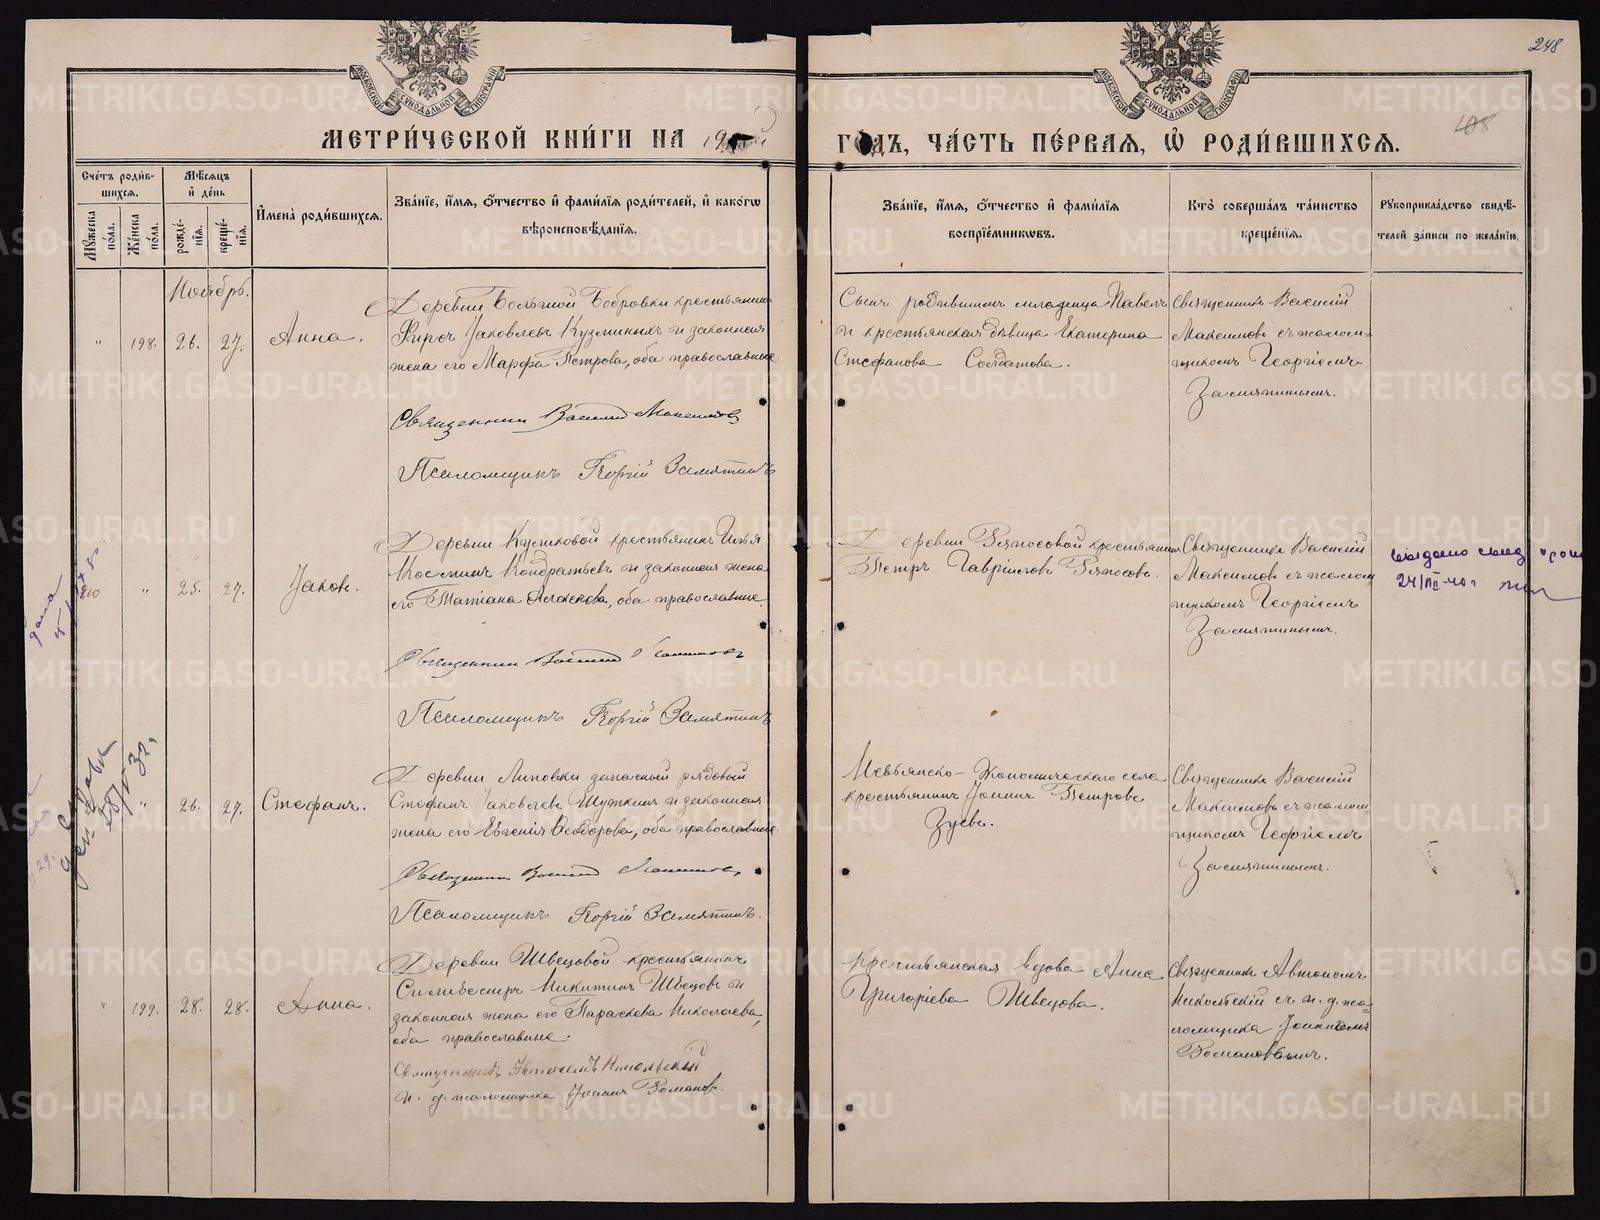 248
108
МОСКОВСКОЙ СѴНОДАЛЬНОЙ ТИПОГРАФІИ
МОСКОВСКОЙ СѴНОДАЛЬНОЙ ТИПОГРАФІИ
МЕТРИ́ЧЕСКОЙ КНИ́ГИ НА 19
ГО́ДЪ, ЧА́СТЬ ПЕ́РВАѦ, Ѡ҆ РОДИ́ВШИХСѦ.
Сче́тъ роди́в-
шихсѧ.
Мꙋ́жеска
по́ла.
Же́нска
по́ла.
Мѣ́сѧцъ
и҆ де́нь
рожде́-
нїѧ.
креще́-
нїѧ.
И҆мена̀ роди́вшихсѧ.
Зва́нїе, и҆́мѧ, ѻ҆́тчество и҆ фами́лїѧ роди́телей, и҆ како́гѡ
вѣроисповѣ́данїѧ.
Зва́нїе, и҆́мѧ, ѻ҆́тчество и҆ фами́лїѧ
воспрїе́мникѡвъ.
Кто̀ соверша́лъ та́инство
креще́нїѧ.
Рꙋкоприкла́дство свидѣ́-
телей за́писи по жела́нїю.
Ноябрь.
" 198. 26. 27. Анна.
Деревни Большой Бобровки крестьянинъ
Фирсъ Іаковлевъ Кузминыхъ и законная
жена его Марфа Петрова, оба православные.
Священникъ Василій Максимовъ
Псаломщикъ Георгій Замятинъ
Сынъ родившимъ младенца Павелъ
и крестьянская дѣвица Екатерина
Стефанова Солдатова.
Священникъ Василій
Максимовъ съ псалом-
щикомъ Георгіемъ
Замятинымъ.
" 25. 27. Іаковъ.
Деревни Куликовой крестьянинъ Илья
Косминъ Кондратьевъ и законная жена
его Татіана, оба православные.
Священникъ Василій Максимовъ
Псаломщикъ Георгій Замятинъ
Деревни Ряпосовой крестьянинъ
Петръ Гавріиловъ Ряпосовъ.
Священникъ Василій
Максимовъ съ псалом
щикомъ Георгіемъ
Замятинымъ.
выдано свид
24/III-40г
" 26. 27. Стефанъ.
Деревни Липовки запасный рядовой
Стефанъ Іаковлевъ Шуткинъ и законная
жена его Евгенія Ѳеодорова, оба православные
Священникъ Василій Максимовъ
Псаломщикъ Георгій Замятинъ.
Невьянско-Экономическаго села
крестьянинъ Іоаннъ Петровъ
Зуевъ.
Священникъ Василій
Максимовъ съ псалом
щикомъ Георгіемъ
Замятинымъ.
" 199. 28. 28. Анна.
Деревни Швецовой крестьянинъ
Силивестръ Никитинъ Швецовъ и
законная жена его Параскева Николаева,
оба православные.
Священникъ Автономъ Никольскій
и. д. псаломщика Іоаннъ Романовъ.
Крестьянская вдова Анна
Григоріева Швецова.
Священникъ Автономъ
Никольскій съ и. д. пса-
ломщика Іоанномъ
Романовымъ.
METRIKI.GASO-URAL.RU